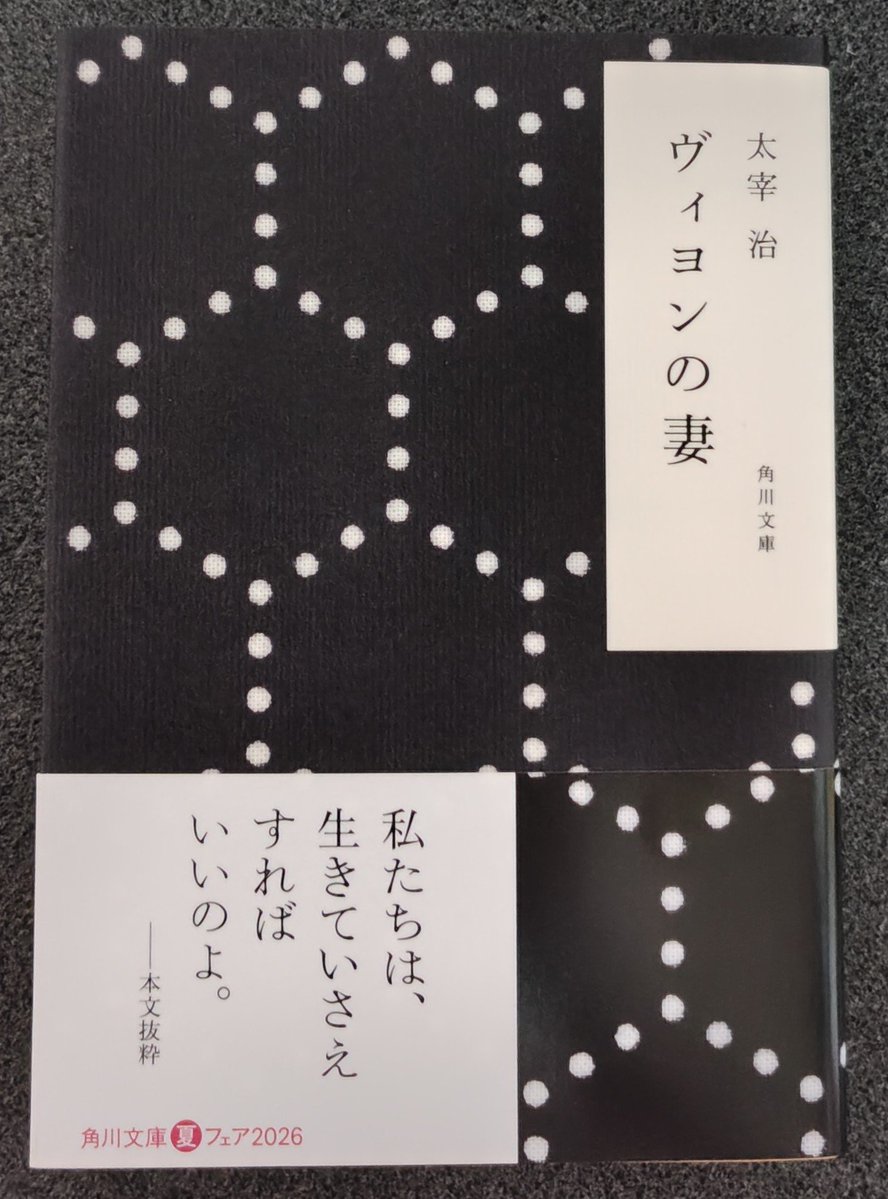 太宰 治
ヴィヨンの妻
角川文庫
私たちは、
生きていさえ
すれば
いいのよ。
──本文抜粋
角川文庫夏フェア2026